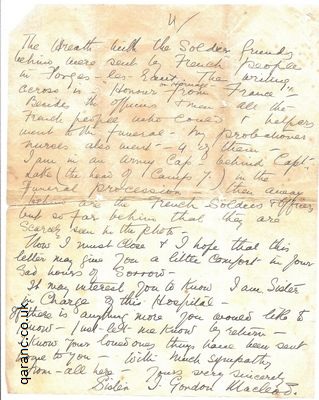 4/
The Wreath with the Soldier friends
behind were sent by French people
in Forges-les-Eaux. The writing
across is - Honour in Homage from France" -
Beside the Officers & men - all the
French people who could & helpers
went to the funeral - My probationer
nurses also went - 4 of them -
I am in an Army Cap & behind Capt -
(the head of Camps 7.) in the
funeral procession & then away
behind are the French Soldiers & Officers
but so far behind that they are
scarcely seen in the photo -
Now I must Close & I hope that this
letter may give You a little Comfort in your
Sad hours of Sorrow -
It may interest you to know I am Sister
in Charge of this Hospital -
If there is anything more You would like to
know - Just let me know by return -
I know Your loved ones things have been sent
home to you - With Much Sympathy
from - all here - Yours very sincerely
Sister I Gordon Macleod.
qaranc.co.uk